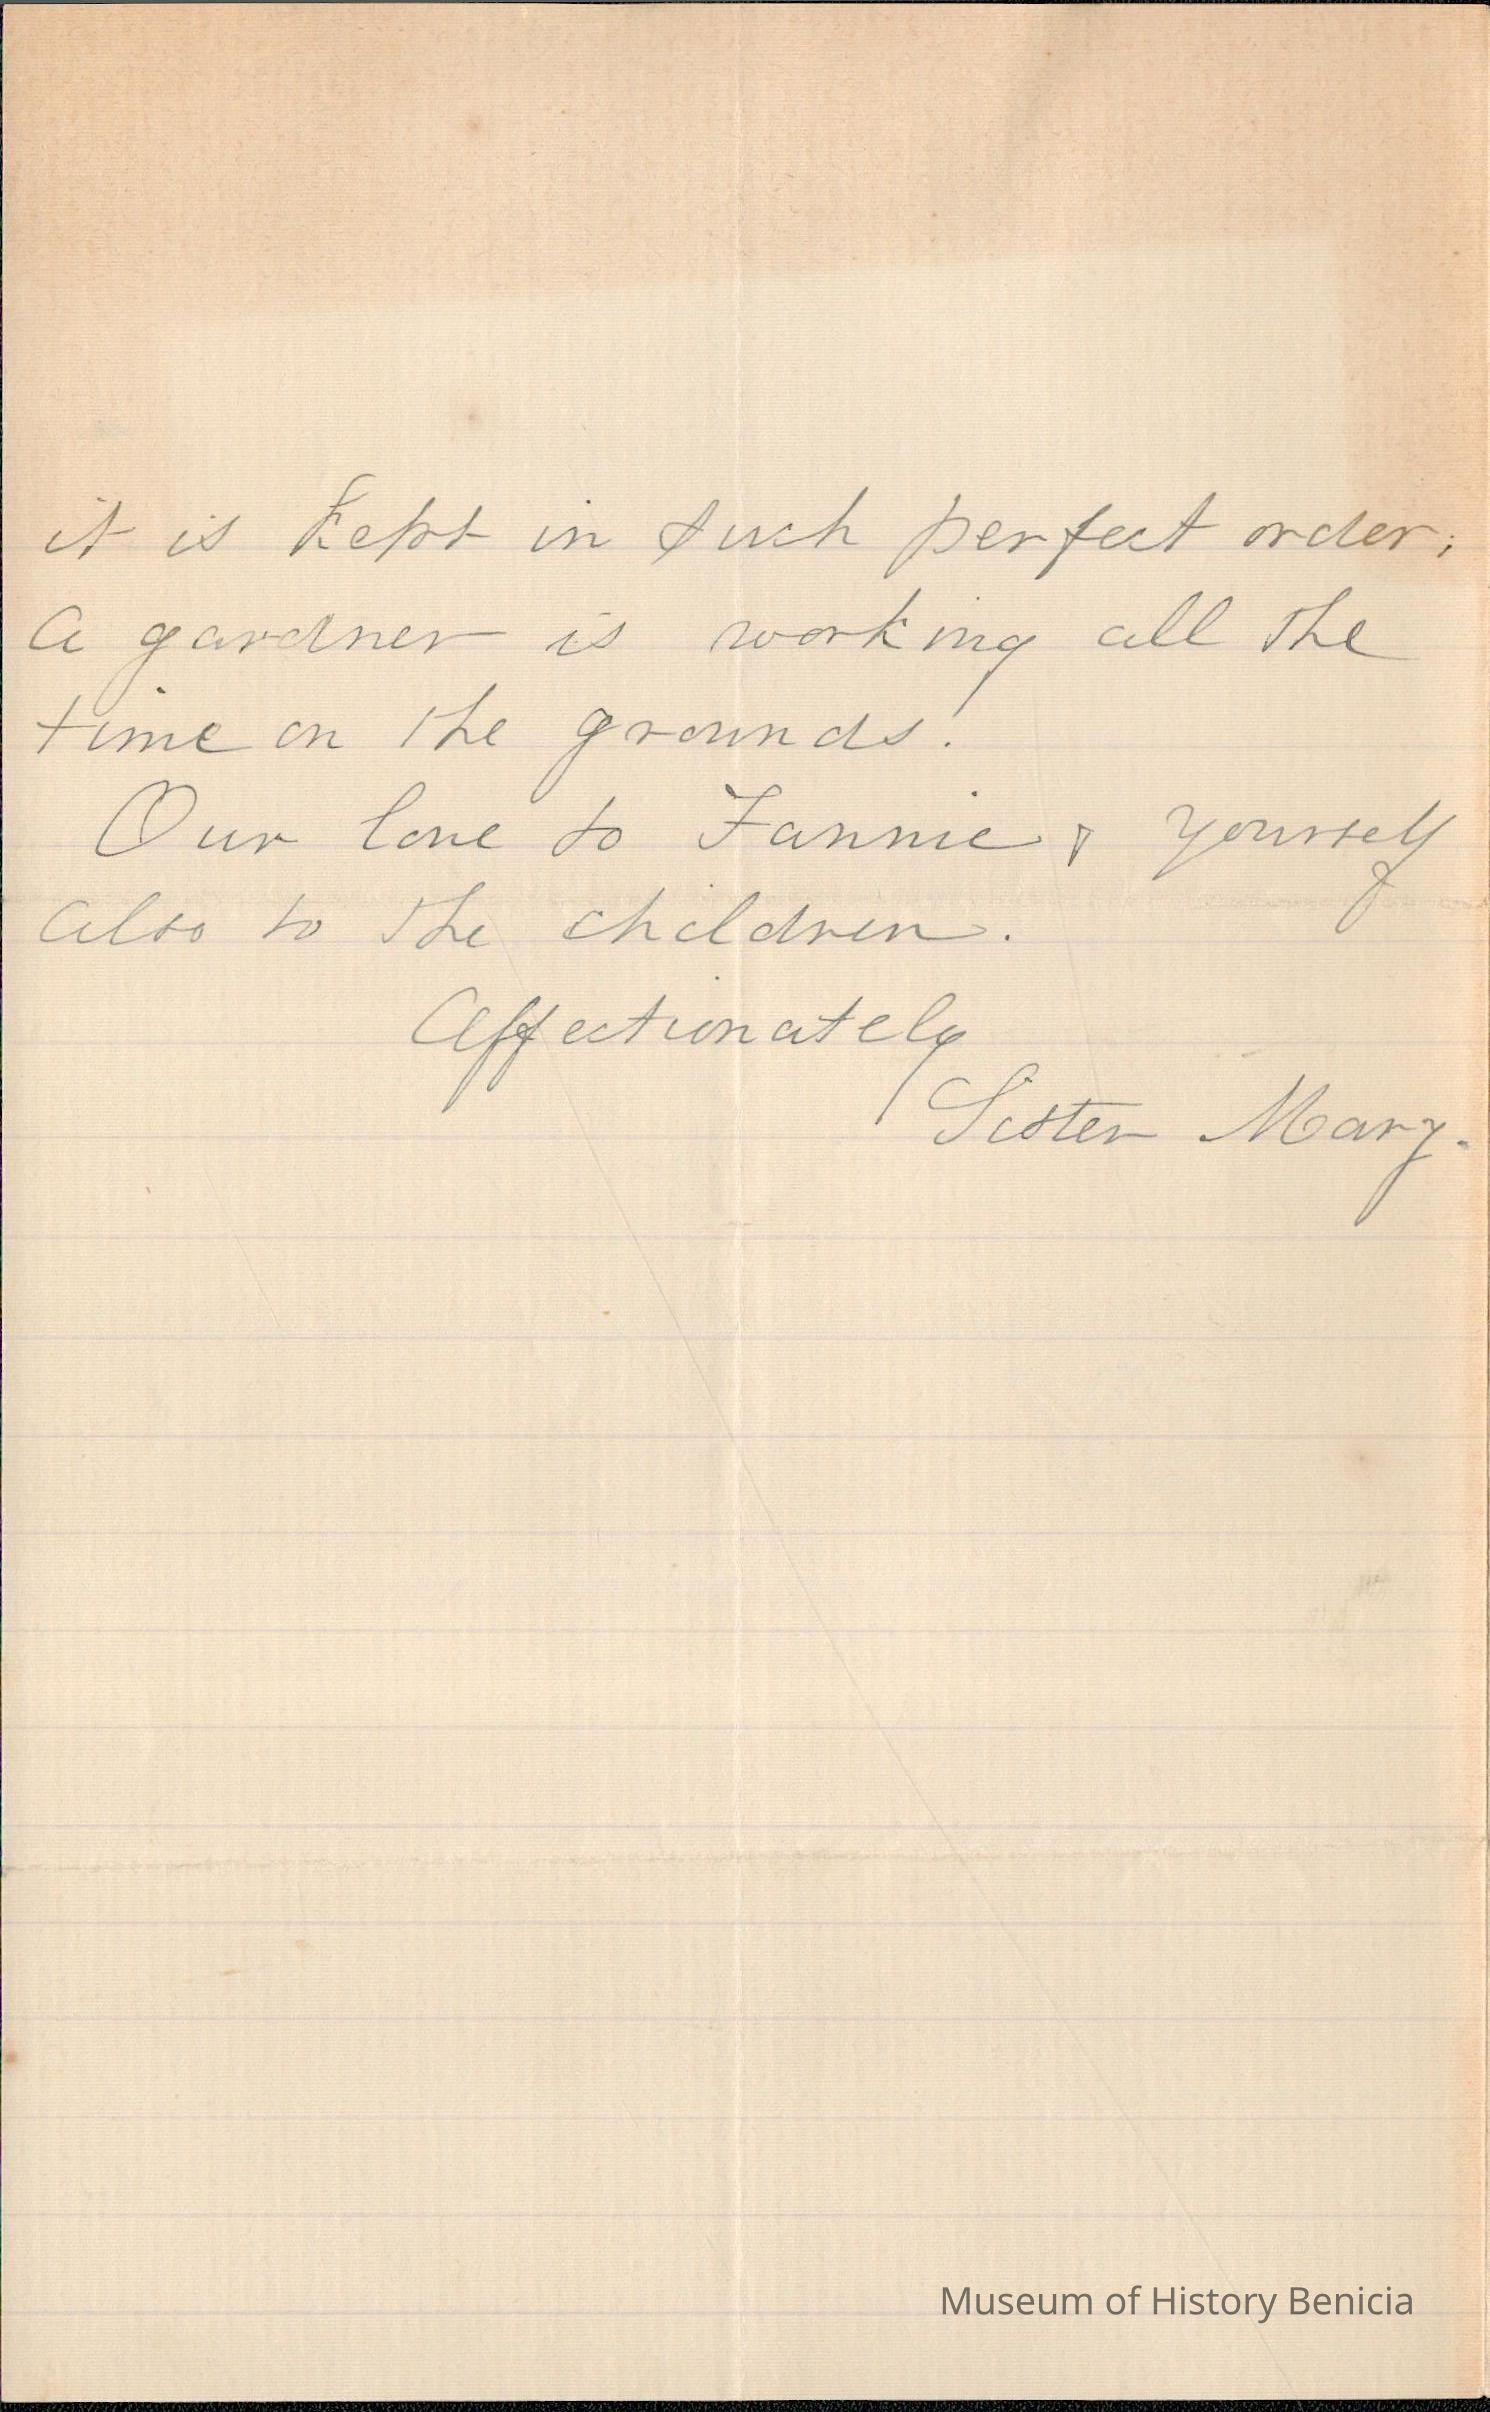 it is kept in such perfect order;
a gardner is working all the
time on the grounds.
Our love to Fannie & yourself
also to the children.
Affectionately
Sister Mary.
Museum of History Benicia